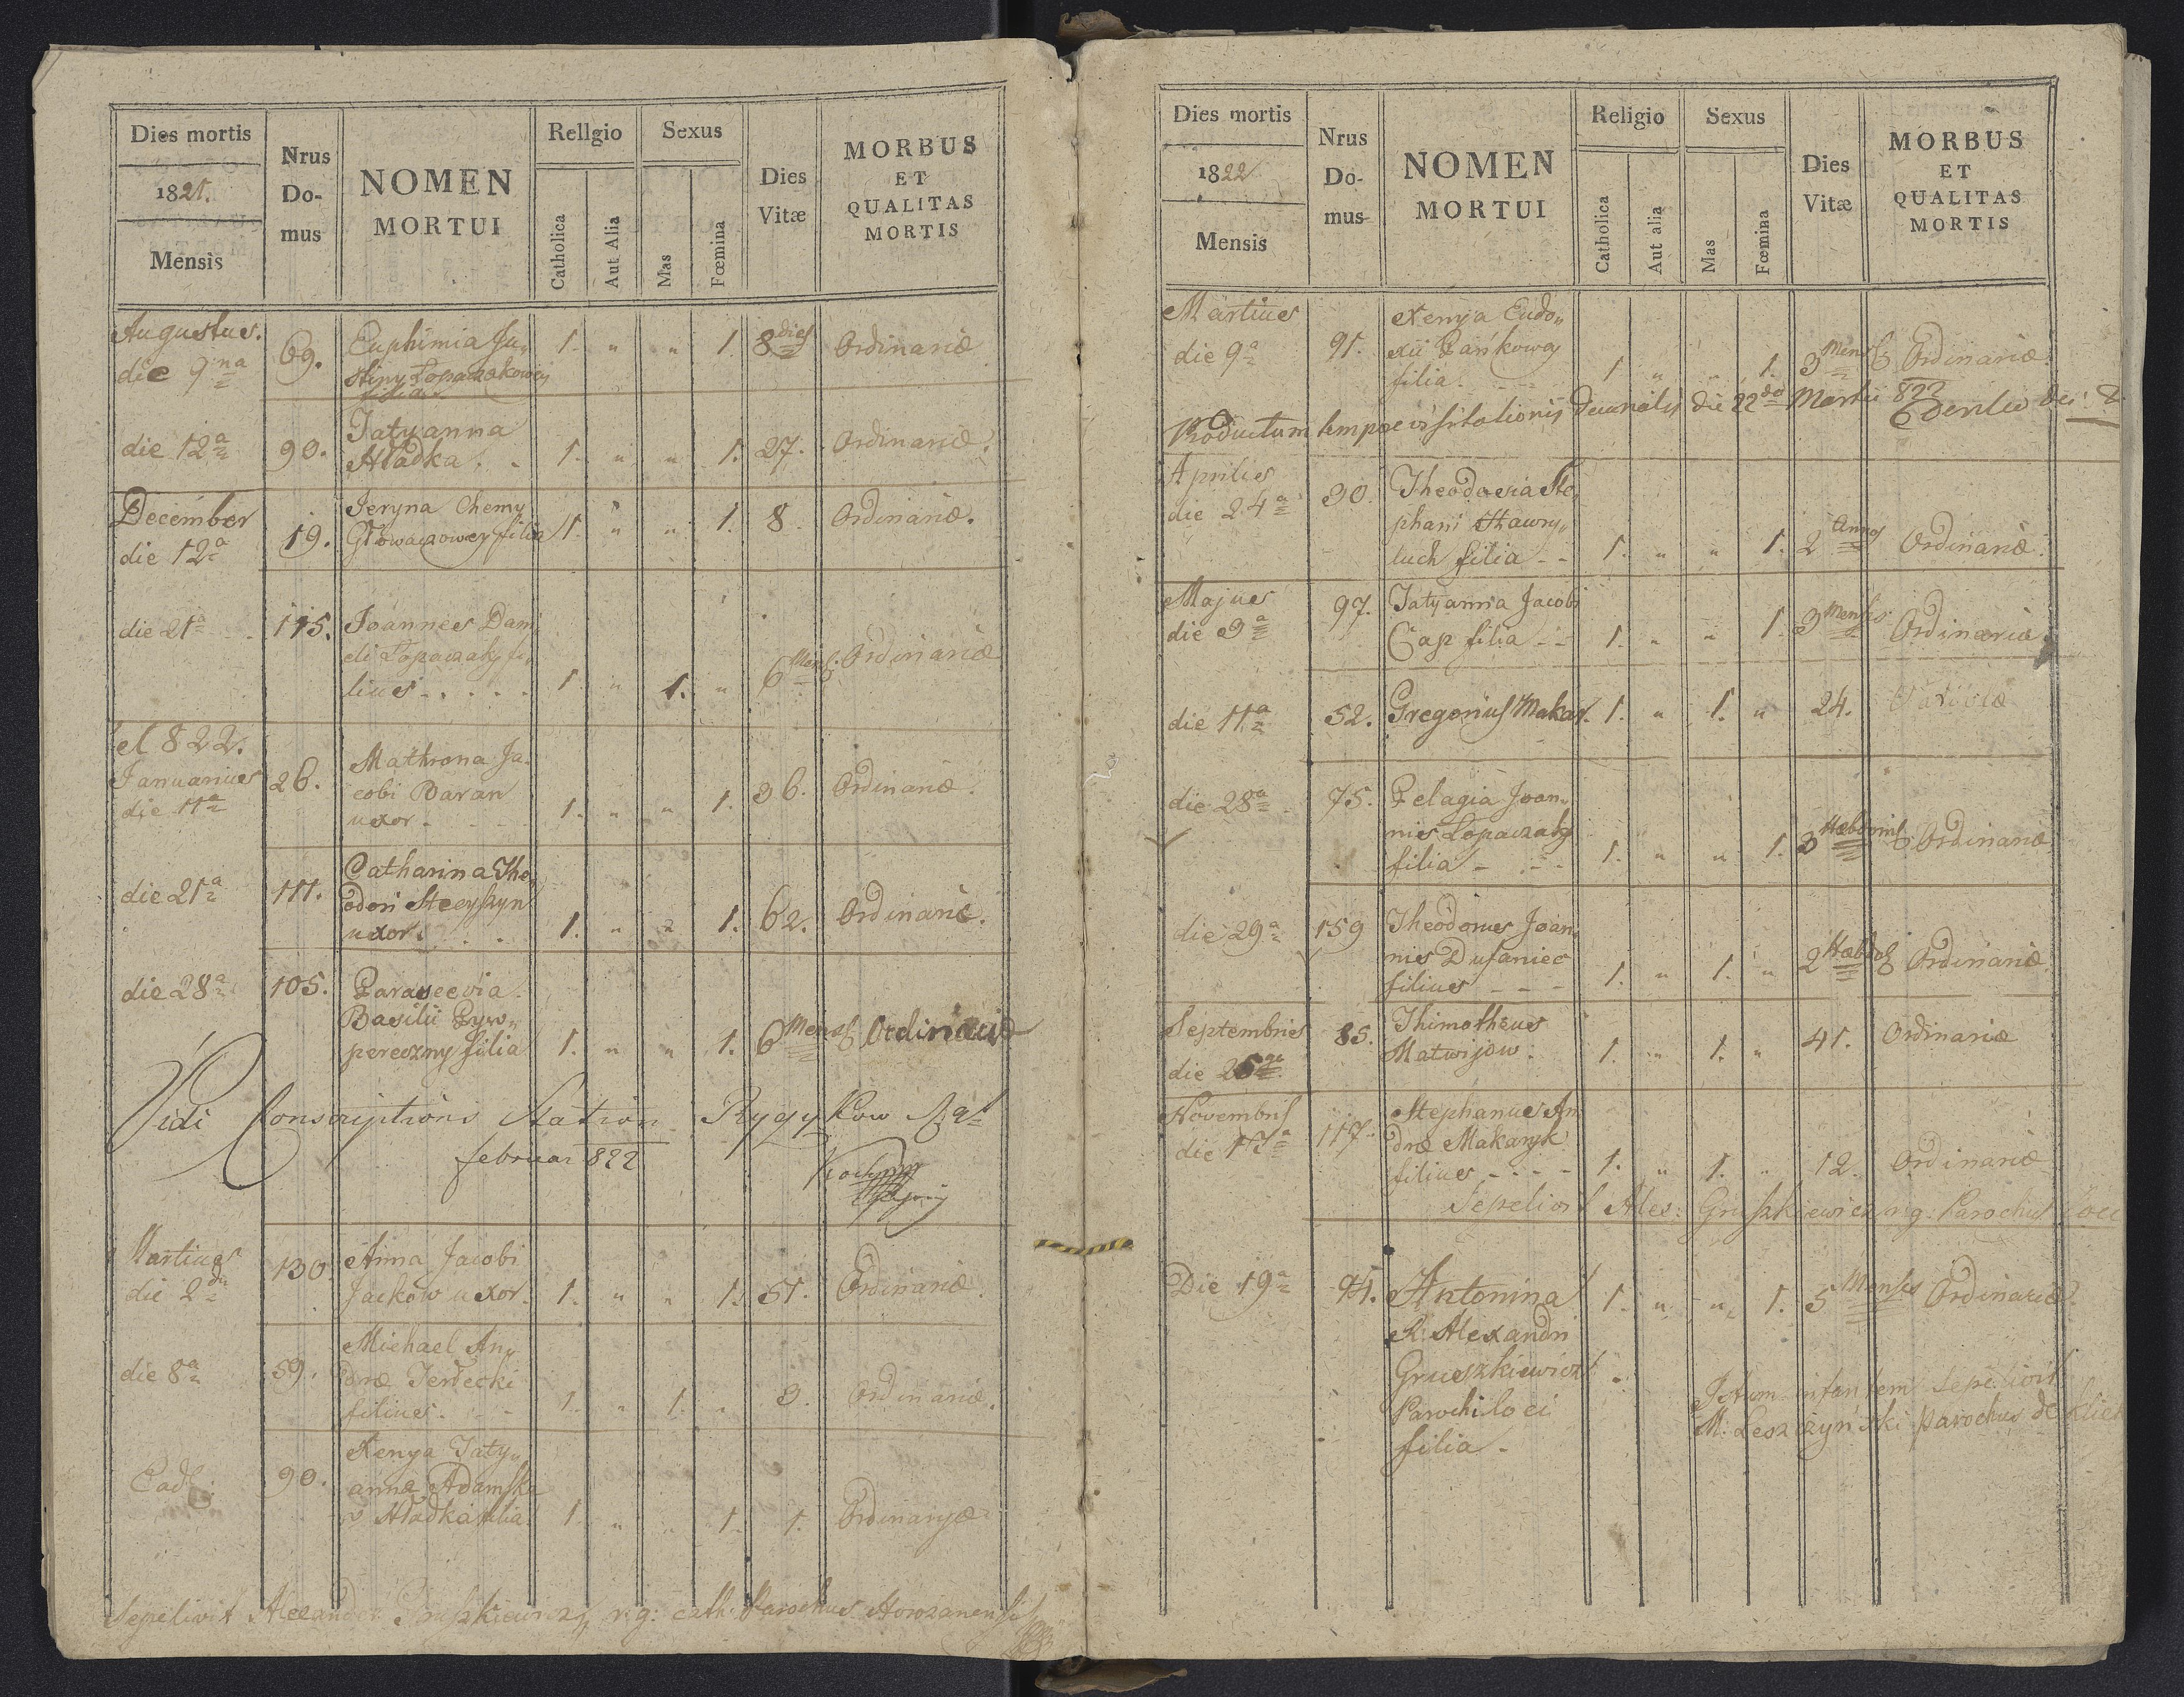 Dies mortis
1821.
Mensis
Nrus
Do-
mus
NOMEN
MORTUI
Rellgio
Catholica
Aut Alia
Sexus
Mas
Fœmina
Dies
Vitæ
MORBUS
ET
QUALITAS
MORTIS
Augustus.
die 9na 69. Euphimia Ju„ 1. „ „ 1. 8 dies Ordinariæ
stiny Łopaczakowey
filia.
die 12a 90. Tatyanna
Hładka. . 1. „ „ 1. 27. Ordinariæ.
December
die 12a 19. Jeryna Chemy
Głowaczowey filia 1. „ „ 1. 8. Ordinariæ.
die 21a 115. Joannes Dani
eli Łopaczak fi„
lius . . . . 1. „ 1. „ 6 Mens. Ordinariæ
et 822.
Januarius
die 11a 26. Mathrona Ja„
cobi Baran
uxor 1. „ „ 1. 36. Ordinariæ.
die 21a 111. Catharina The„
odori Stecyszyn
uxor. . . 1. „ „ 1. 62. Ordinariæ.
die 28a 105. Parascevia
Basilii
filia 1. „ „ 1. 6 Mens Ordinariæ
Vidi Conscriptions Station
februar 822
Martius
die 2da 130 Anna Jacobi
Jacków uxor. 1. „ „ 1. 51. Ordinariæ.
die 8a 59. Michael An„
dreæ Terlecki
filius. - - 1. „ 1. „ 3. Ordinariæ.
Ead. 90. Xenya Taty„
annæ Adamska
v Hładka filia. 1. „ „ 1. 1. Ordinaryæ
Sepelivit Alexander Gruszkiewicz r: g: cath: Parochus
Dies mortis
1822
Mensis
Nrus
Do-
mus
NOMEN
MORTUI
Religio
Catholica
Aut alia
Sexus
Mas
Fœmina
Dies
Vitæ
MORBUS
ET
QUALITAS
MORTIS
Martius
die 9a 91. Xenya Eudo„
xii Pańkowa
filia. 1 „ „ 1. 3 Mens Ordinariæ.
Productum tempore visitationis Decanalis die 22do Martii 822
Aprilis
die 24a 30. Theodosia Ste„
phani Hawry„
luch filia - - 1. „ „ 1. 2 Annos Ordinariæ.
Majus
die 3a 97. Tatyanna Jacobi
Cap filia - - 1. „ „ 1. 3 Menses Ordinariæ
die 11a 52. Gregorius Makar. 1. „ 1. „ 24.
die 28a 75. Pelagia Joan„
nis Łopaczak
filia - - - 1. „ „ 1. 3 Hebdom Ordinariæ
die 29a 159 Theodorus Joan„
nis Dufaniec
filius - - - 1. „ 1. „ 2 Hebdo Ordinariæ.
Septembris
die 85. Thimotheus
Matwijow. 1. „ 1. „ 41. Ordinariæ
Novembris
die 17a 117. Stephanus An
dreæ Makaryk
filius - - - 1. „ 1. „ 12. Ordinariæ
Sepelivit Alex: Gruszkiewicz r: g: Parochus Loci
Die 19a 94. Antonina 1. „ „ 1. 5 Menses Ordinariæ.
R: Alexandri
Gruszkiewicz
Parochi loci
filia -
Istam infantem sepelivit
M: Leszczyński parochus de